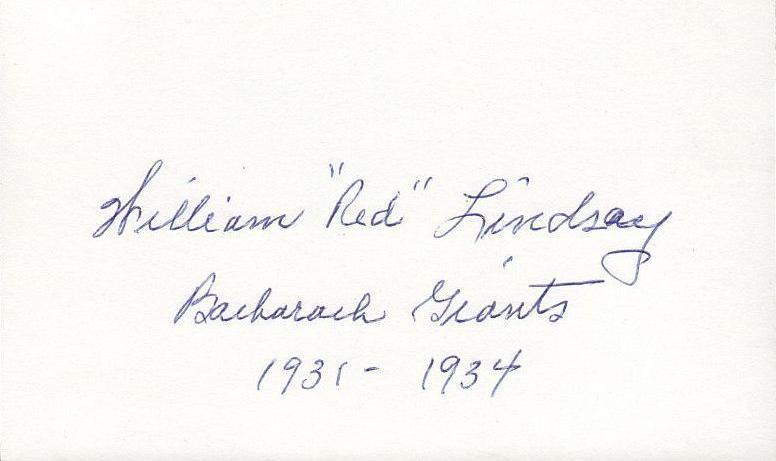 William "Red" Lindsay
Bacharach Giants
1931- 1934